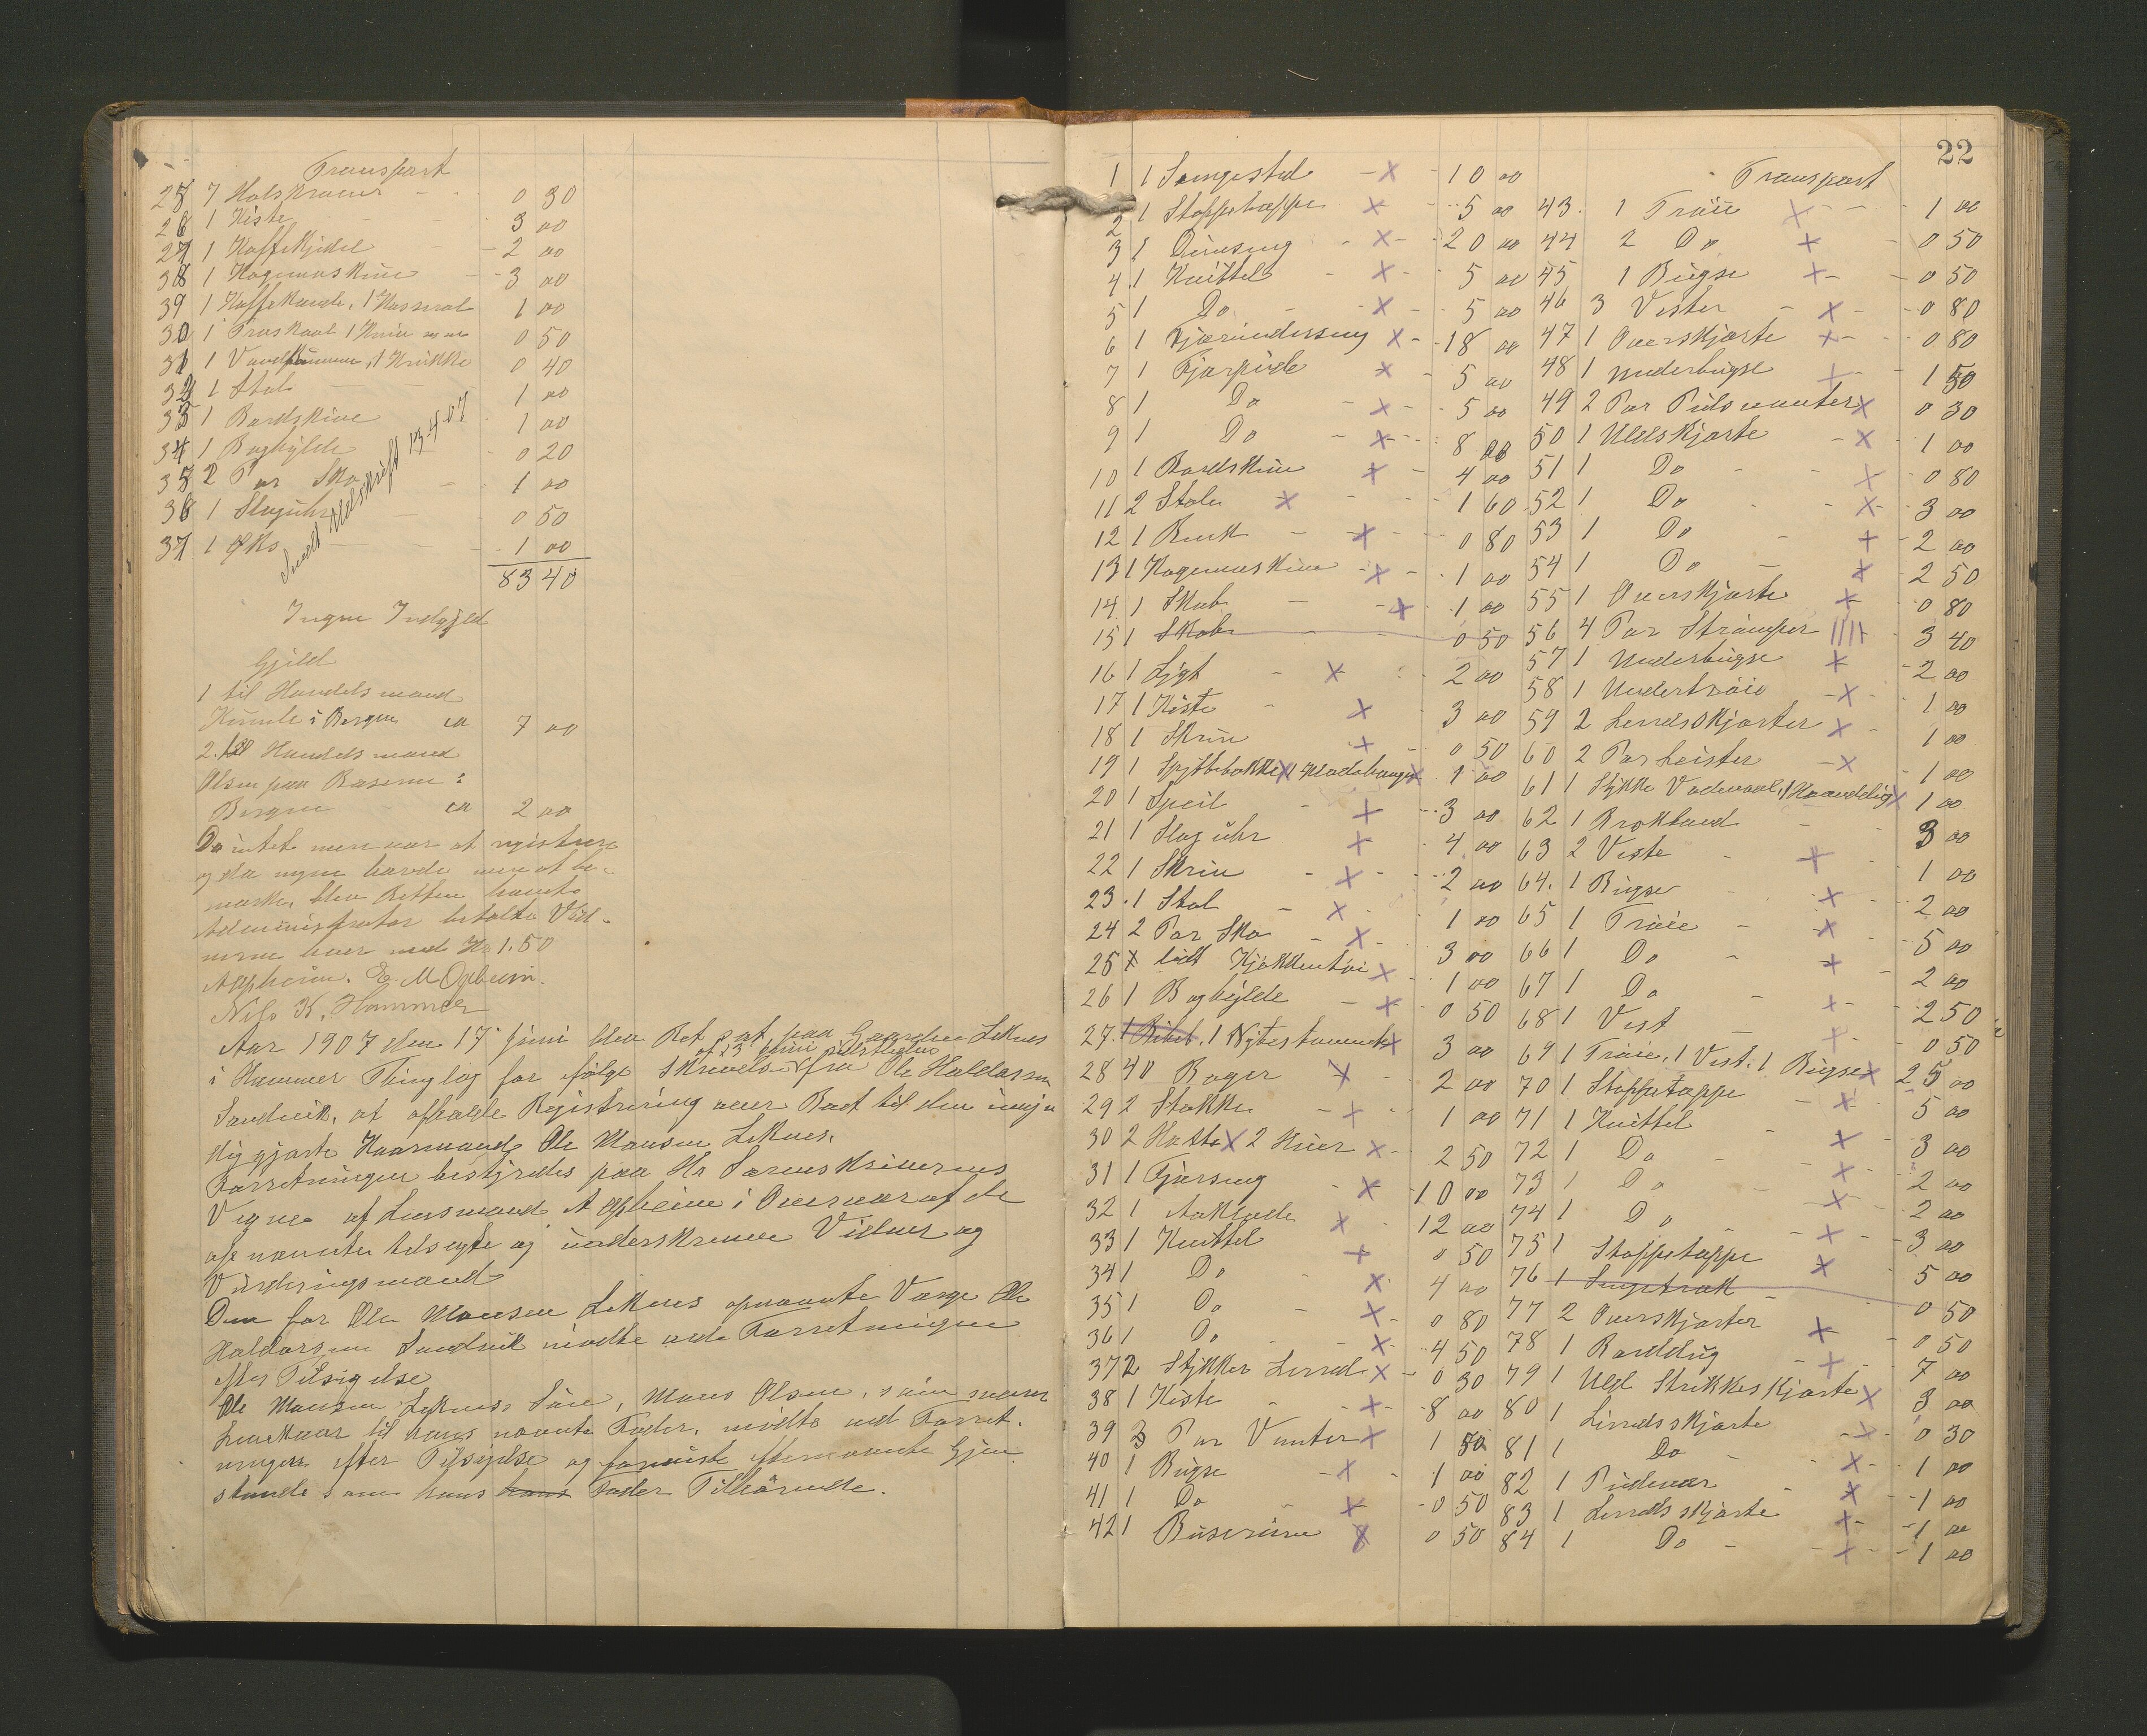 Transport
25 7 Halskraver - 0 30
26 1 Kiste - 3 00
27 1 Kaffekjedel - 2 00
28 1 Kogemaskine - 3 00
29 1 Kaffekande, 1 Kasserol 1 00
30 1 Træskaal 1 Kniv m m 0 50
31 1 Vandspanne, 1 Krukke 0 40
32 1 Stol - 1 00
33 1 Bordskive 1 00
34 1 Boghylde - 0 20
35 2 Par Sko - 1 00
36 1 Slaguhr - 0 50
37 1 Øks - 1 00
83 40
Sendt Udskrift 13-4-07
Ingen Indgjeld
Gjeld
1 til Handelsmand
i Bergen ca 7 00
2. til Handelsmand
Olsen paa i
Bergen ca 2 00
Da intet mere var at registrere
og da ingen havde mere at be-
mærke, blev Retten hævet.
Administrator betalte Vid-
nerne hver med Kr 1.50
Apheim. E. M Opheim.
Nils K. Hammer
Aar 1907 den 17 Juni blev Ret sat paa Gaarden Leknes
i Hammer Thinglag for følge Skrivelse fra Ole Haldorsen
Sandvik, at afholde Registrering over Boet til den umyn
diggjorte Kaarmand Ole Monsen Leknes.
Forretningen bestyredes paa Hr Sorenskriverens
Vegne af Lensmand A Apheim i Overvær af de
opnævnte tilsagte og underskrevne Vidner og
Vurderingsmænd
Den for Ole Monsen Leknes opnævnte Værge Ole
Haldorsen Sandvik mødte ved Forretningen
efter Tilsigelse
Ole Monsen Leknes's Søn, Mons Olsen, som svarer
Livskaar til hans nævnte Fader, mødte ved Forret-
ningen efter Tilsigelse og foreviste efternævnte Gjen-
stande som hans hans Fader Tilhørende.
22
1 1 Sengested - X - 10 00
2 1 Stoppetæppe X - 5 00
3 1 Dunseng - X - 20 00
4 1 Kvittel - X - 5 00
5 1 Do - X - 5 00
6 1 Fjærunderseng X - 18 00
7 1 Fjærpude X - 5 00
8 1 Do - X - 5 00
9 1 Do - X - 8 00
10 1 Bordskive X - 4 00
11 2 Stole X - 1 60
12 1 Bænk - X - 0 80
13 1 Kogemaskine - X - 1 00
14 1 Skab - X - 1 00
15 1 Skab - 0 50
16 1 Lygt - X 2 00
17 1 Kiste - X 3 00
18 1 Skrin X 0 50
19 1 Spyttebakke X 1 X 1 00
20 1 Speil - X - 3 00
21 1 Slaguhr X 4 00
22 1 Skrin - X - 2 00
23 1 Stol - X - 1 00
24 2 Par Sko - X - 3 00
25 X lidt Kjøkkentøi X - 1 00
26 1 Boghylde - X - 0 50
27 1 Bibel, 1 Nytestamente X 3 00
28 40 Bøger X - 2 00
29 2 Stokke - X - 1 00
30 2 Hatte X 2 Huer X - 2 50
31 1 Fjærseng - X - 10 00
32 1 Aaklæde X 12 00
33 1 Kvittel X 0 50
34 1 Do - X 4 00
35 1 Do - X 0 80
36 1 Do - X - 4 50
37 2 Stykker Lerred X - 0 30
38 1 Kiste - X - 8 00
39 3 Par Vanter X 1 50
40 1 Bugse - X - 1 00
41 1 Do - X - 0 50
42 1 Buserun X 0 50
Transport
43 1 Trøie X - 1 00
44 2 Do X - 0 50
45 1 Bugse X - 0 50
46 3 Vester - X - 0 80
47 1 Overskjorte X - 0 80
48 1 Underbugse X - 1 50
49 2 Par X 0 30
50 1 Uldskjorte - X 1 00
51 1 Do - X - 0 80
52 1 Do - X - 3 00
53 1 Do - X - 2 00
54 1 Do - X - 2 50
55 1 Overskjorte X 0 80
56 4 Par Strømper 3 40
57 1 Underbugse X - 2 00
58 1 Undertrøie - X - 1 00
59 2 Lerredsskjorter X - 1 00
60 2 Par Leister - X - 1 00
61 1 Stykke Vadmel, 1 X 1 00
62 1 - 3 00
63 2 Veste - X - 1 00
64 1 Bugse - X - 2 00
65 1 Trøie - X - 5 00
66 1 Do - X - 2 00
67 1 Do - X - 2 50
68 1 Vest - X - 0 50
69 1 Trøie, 1 Vest, 1 Bugse X 25 00
70 1 Stoppetæppe - X - 5 00
71 1 Kvittel - X - 3 00
72 1 Do - X - 2 00
73 1 Do - X - 2 00
74 1 Do - X - 3 00
75 1 Stoppetæppe X 5 00
76 1 Sengetræk - 0 50
77 2 Overskjorter X - 0 50
78 1 Borddug - X - 7 00
79 1 Uld Strikkeskjorte X 3 00
80 1 Lerredsskjorte - X - 0 30
81 1 Do - X - 1 00
82 1 Pudevar - X - 1 00
83 1 Lerredsskjorte X - 1 00
84 1 Do - X - 1 00